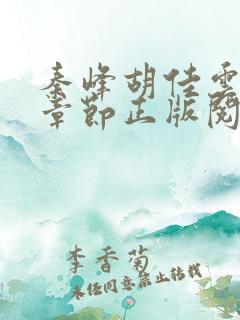 秦峰胡佳雲
章節正版閱
李香菊
未经同意禁止转载